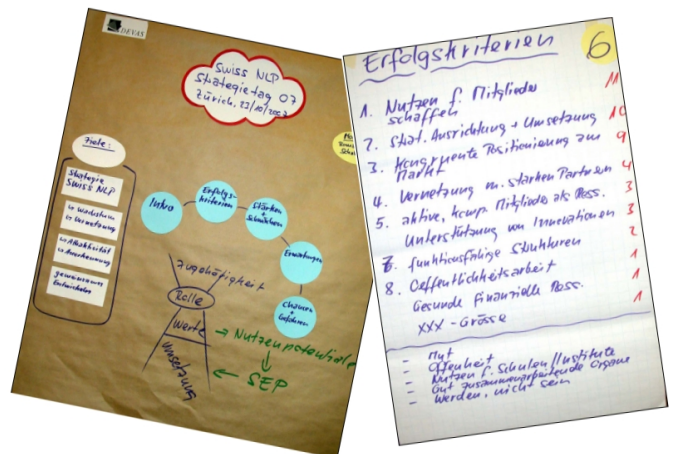 DEVAS
Swiss NLP
Strategietag 07
Zürich, 23/10/2007
Ziele:
Strategie
SWISS NLP
Wachstum
Vernetzung
Attraktivität
Anerkennung
gemeinsames
Intro
Erfolgs-
kriterien
Stärken
+
Schwächen
Erwartungen
Chancen
+
Gefahren
Zugehörigkeit
Rolle
Werte
Umsetzung
→ Nutzenpotentiale
SEP
Erfolgskriterien
6
1. Nutzen f. Mitglieder
schaffen 11
2. Strat. Ausrichtung + Umsetzung 10
3. Kongruente Positionierung am
Markt 9
4. Vernetzung m. starken Partnern 4
5. aktive, komp. Mitglieder als Ross. 3
Unterstützung von Innovationen 3
7. funktionsfähige Strukturen 2
8. Oeffentlichkeitsarbeit 1
Gesunde finanzielle Ross. 1
XXX - Grösse 1
- Mut
- Offenheit
- Nutzen f. Schulen/Institute
- Gut zusammenarbeitende Organe
- werden, nicht sein